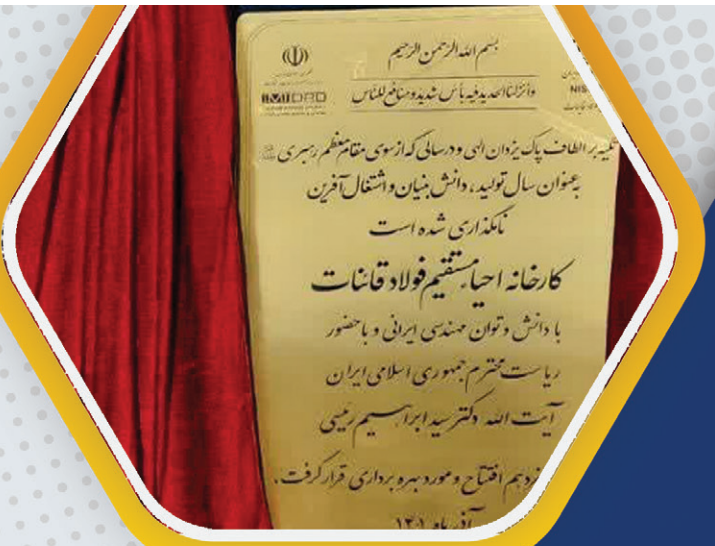 بسم الله الرحمن الرحیم
وأنزلنا الحدید فیه بأس شدید ومنافع للناس
IMIDRO
NIS
تکیه بر الطاف پاک یزدان الهی و در سالی که از سوی مقام معظم رهبری
بعنوان سال تولید، دانش بنیان و اشتغال آفرین
نامگذاری شده است
کارخانه احیاء مستقیم فولاد قائنات
با دانش و توان مهندسی ایرانی و با حضور
ریاست محترم جمهوری اسلامی ایران
آیت الله دکتر سید ابراهیم رئیسی
افتتاح و مورد بهره برداری قرار گرفت.
آذر ماه ۱۴۰۱